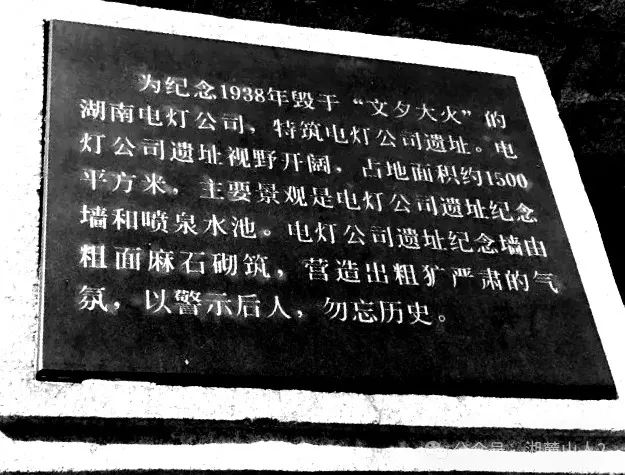 为纪念1938年毁于“文夕大火”的
湖南电灯公司，特筑电灯公司遗址。电
灯公司遗址视野开阔，占地面积约1500
平方米，主要景观是电灯公司遗址纪念
墙和喷泉水池。电灯公司遗址纪念墙由
粗面麻石砌筑，营造出粗犷严肃的气
氛，以警示后人，勿忘历史。
公众号：湖麓山人2